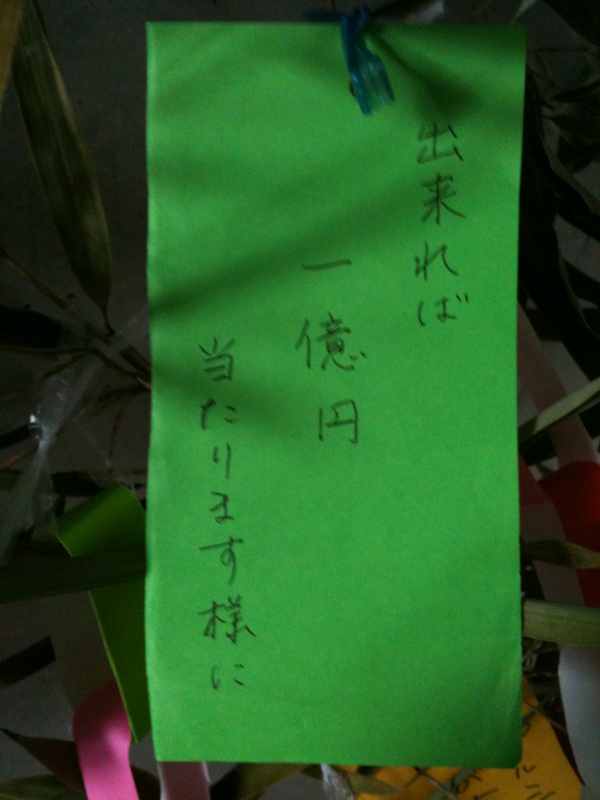 出来れば
一億円
当たります様に